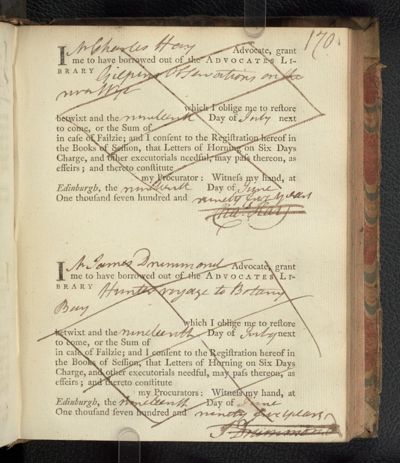 170.
I Mr Charles Hay Advocate, grant
me to have borrowed out of the ADVOCATES LI-
BRARY Gilpins Observations on the
river Wye
which I oblige me to reſtore
betwixt and the nineteenth Day of July next
to come, or the Sum of
in caſe of Failzie; and I conſent to the Regiſtration hereof in
the Books of Seſſion, that Letters of Horning on Six Days
Charge, and other executorials needful, may paſs thereon, as
effeirs; and thereto conſtitute
my Procurator: Witneſs my hand, at
Edinburgh, the nineteenth Day of June
One thouſand ſeven hundred and ninety five years
Cha. Hay
I Mr James Drummond Advocate, grant
me to have borrowed out of the ADVOCATES LI-
BRARY Hunters voyage to Botany
Bay
which I oblige me to reſtore
betwixt and the nineteenth Day of July next
to come, or the Sum of
in caſe of Failzie; and I conſent to the Regiſtration hereof in
the Books of Seſſion, that Letters of Horning on Six Days
Charge, and other executorials needful, may paſs thereon, as
effeirs; and thereto conſtitute
my Procurators: Witneſs my hand, at
Edinburgh, the nineteenth Day of June
One thouſand ſeven hundred and ninety five years
J Drummond